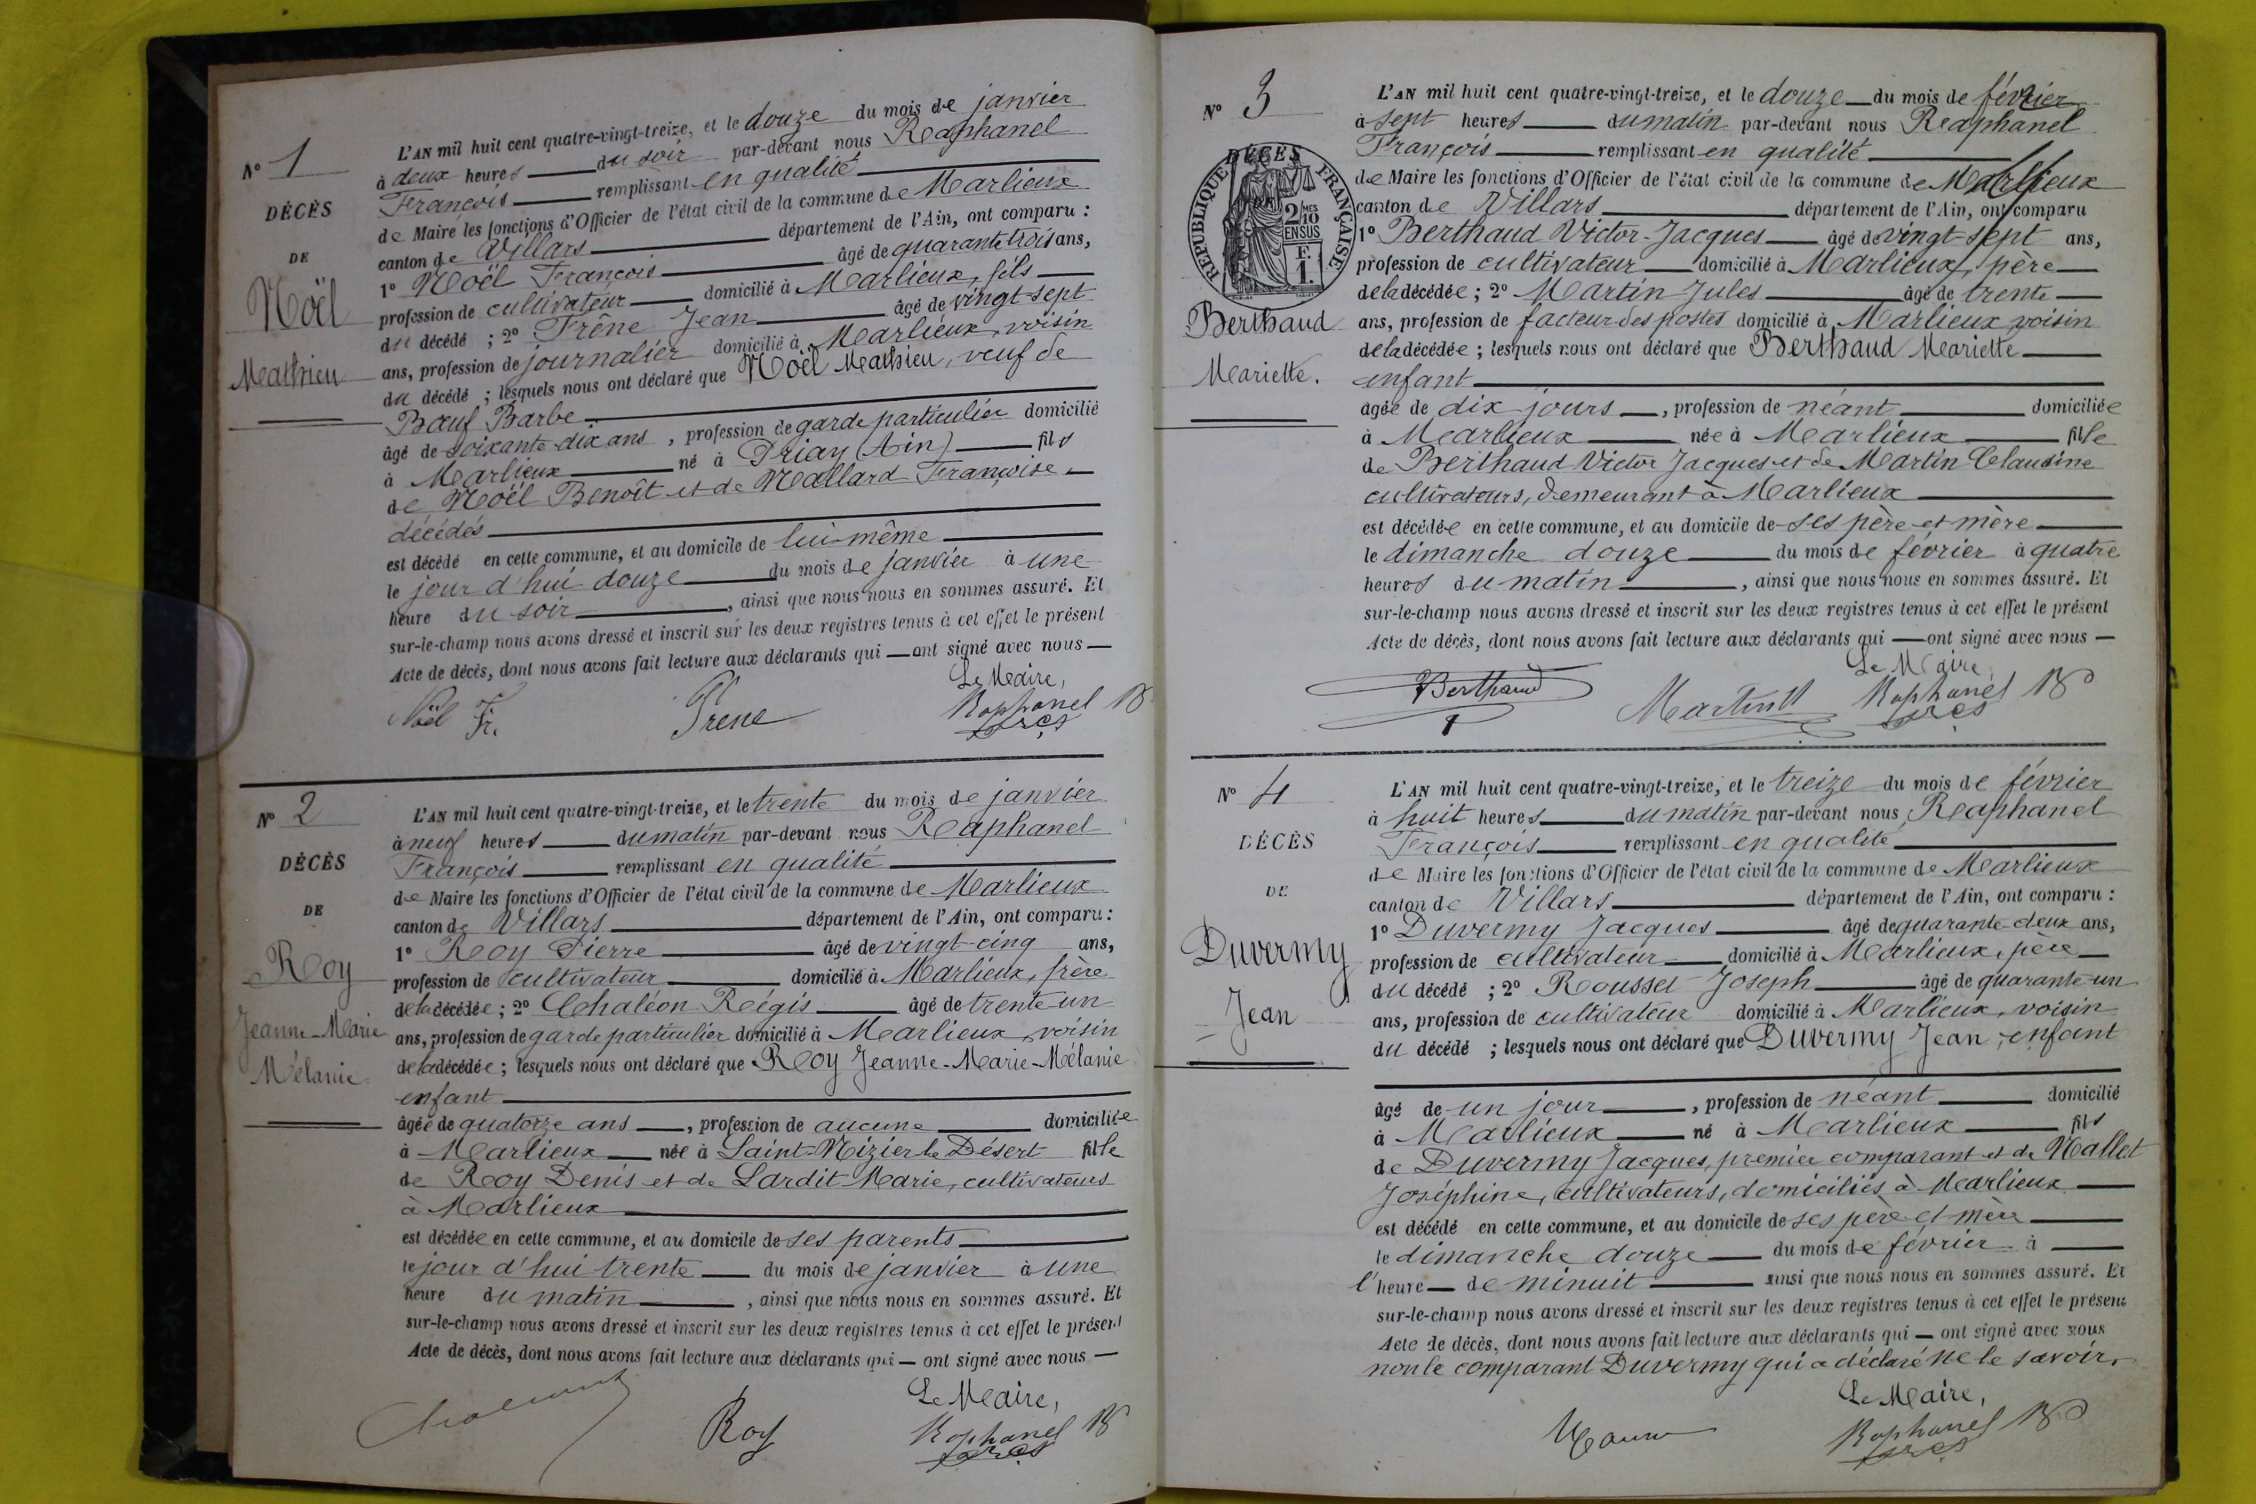 N° 1
DÉCÈS
DE
Noël
Mathieu
L'AN mil huit cent quatre-vingt-treize, et le douze du mois de janvier
à deux heures du soir par-devant nous Raphanel
François remplissant en qualité
de Maire les fonctions d'Officier de l'état civil de la commune de Marlieux
canton de Villars département de l'Ain, ont comparu :
1° Noël François âgé de quarante trois ans,
profession de cultivateur domicilié à Marlieux, fils
du décédé ; 2° Frêne Jean âgé de vingt-sept
ans, profession de journalier domicilié à Marlieux, voisin
du décédé ; lesquels nous ont déclaré que Noël Mathieu, veuf de
Bœuf Barbe
âgé de soixante-dix ans, profession de garde particulier domicilié
à Marlieux né à Priay (Ain) fils
de Noël Benoît et de Mallard Françoise
décédés
est décédé en cette commune, et au domicile de lui-même
le jour d'hui douze du mois de janvier à une
heure du soir, ainsi que nous nous en sommes assuré. Et
sur-le-champ nous avons dressé et inscrit sur les deux registres tenus à cet effet le présent
Acte de décès, dont nous avons fait lecture aux déclarants qui ont signé avec nous
Le Maire,
Noël Fr. Frene Raphanel
N° 2
DÉCÈS
DE
Roy
Jeanne-Marie
Mélanie
L'AN mil huit cent quatre-vingt-treize, et le trente du mois de janvier
à neuf heures du matin par-devant nous Raphanel
François remplissant en qualité
de Maire les fonctions d'Officier de l'état civil de la commune de Marlieux
canton de Villars département de l'Ain, ont comparu :
1° Roy Pierre âgé de vingt-cinq ans,
profession de cultivateur domicilié à Marlieux, frère
de la décédée ; 2° Chaléon Régis âgé de trente un
ans, profession de garde particulier domicilié à Marlieux, voisin
de la décédée ; lesquels nous ont déclaré que Roy Jeanne-Marie-Mélanie
enfant
âgée de quatorze ans, profession de aucune domiciliée
à Marlieux née à Saint-Nizier le Désert fille
de Roy Denis et de Lardit Marie, cultivateurs
à Marlieux
est décédée en cette commune, et au domicile de ses parents
le jour d'hui trente du mois de janvier à une
heure du matin, ainsi que nous nous en sommes assuré. Et
sur-le-champ nous avons dressé et inscrit sur les deux registres tenus à cet effet le présent
Acte de décès, dont nous avons fait lecture aux déclarants qui ont signé avec nous
Le Maire,
Roy Raphanel
N° 3
DÉCÈS
RÉPUBLIQUE FRANÇAISE
2 MES
10
EN SUS
F.
1.
Berthaud
Mariette.
L'AN mil huit cent quatre-vingt-treize, et le douze du mois de février
à sept heures du matin par-devant nous Raphanel
François remplissant en qualité
de Maire les fonctions d'Officier de l'état civil de la commune de Marlieux
canton de Villars département de l'Ain, ont comparu
1° Berthaud Victor-Jacques âgé de vingt-sept ans,
profession de cultivateur domicilié à Marlieux, père
de la décédée ; 2° Martin Jules âgé de trente
ans, profession de facteur des postes domicilié à Marlieux voisin
de la décédée ; lesquels nous ont déclaré que Berthaud Mariette
enfant
âgée de dix jours, profession de néant domiciliée
à Marlieux née à Marlieux fille
de Berthaud Victor Jacques et de Martin Claudine
cultivateurs, demeurant à Marlieux
est décédée en cette commune, et au domicile de ses père et mère
le dimanche douze du mois de février à quatre
heures du matin, ainsi que nous nous en sommes assuré. Et
sur-le-champ nous avons dressé et inscrit sur les deux registres tenus à cet effet le présent
Acte de décès, dont nous avons fait lecture aux déclarants qui ont signé avec nous
Le Maire
Berthaud Martin Raphanel
N° 4
DÉCÈS
DE
Duvermy
Jean
L'AN mil huit cent quatre-vingt-treize, et le treize du mois de février
à huit heures du matin par-devant nous Raphanel
François remplissant en qualité
de Maire les fonctions d'Officier de l'état civil de la commune de Marlieux
canton de Villars département de l'Ain, ont comparu :
1° Duvermy Jacques âgé de quarante-deux ans,
profession de cultivateur domicilié à Marlieux, père
du décédé ; 2° Rousset Joseph âgé de quarante-un
ans, profession de cultivateur domicilié à Marlieux, voisin
du décédé ; lesquels nous ont déclaré que Duvermy Jean, enfant
âgé de un jour, profession de néant domicilié
à Marlieux né à Marlieux fils
de Duvermy Jacques, premier comparant et de Mallet
Joséphine, cultivateurs, domiciliés à Marlieux
est décédé en cette commune, et au domicile de ses père et mère
le dimanche douze du mois de février à
l'heure de minuit ainsi que nous nous en sommes assuré. Et
sur-le-champ nous avons dressé et inscrit sur les deux registres tenus à cet effet le présent
Acte de décès, dont nous avons fait lecture aux déclarants qui ont signé avec nous
non le comparant Duvermy qui a déclaré ne le savoir.
Le Maire,
Raphanel